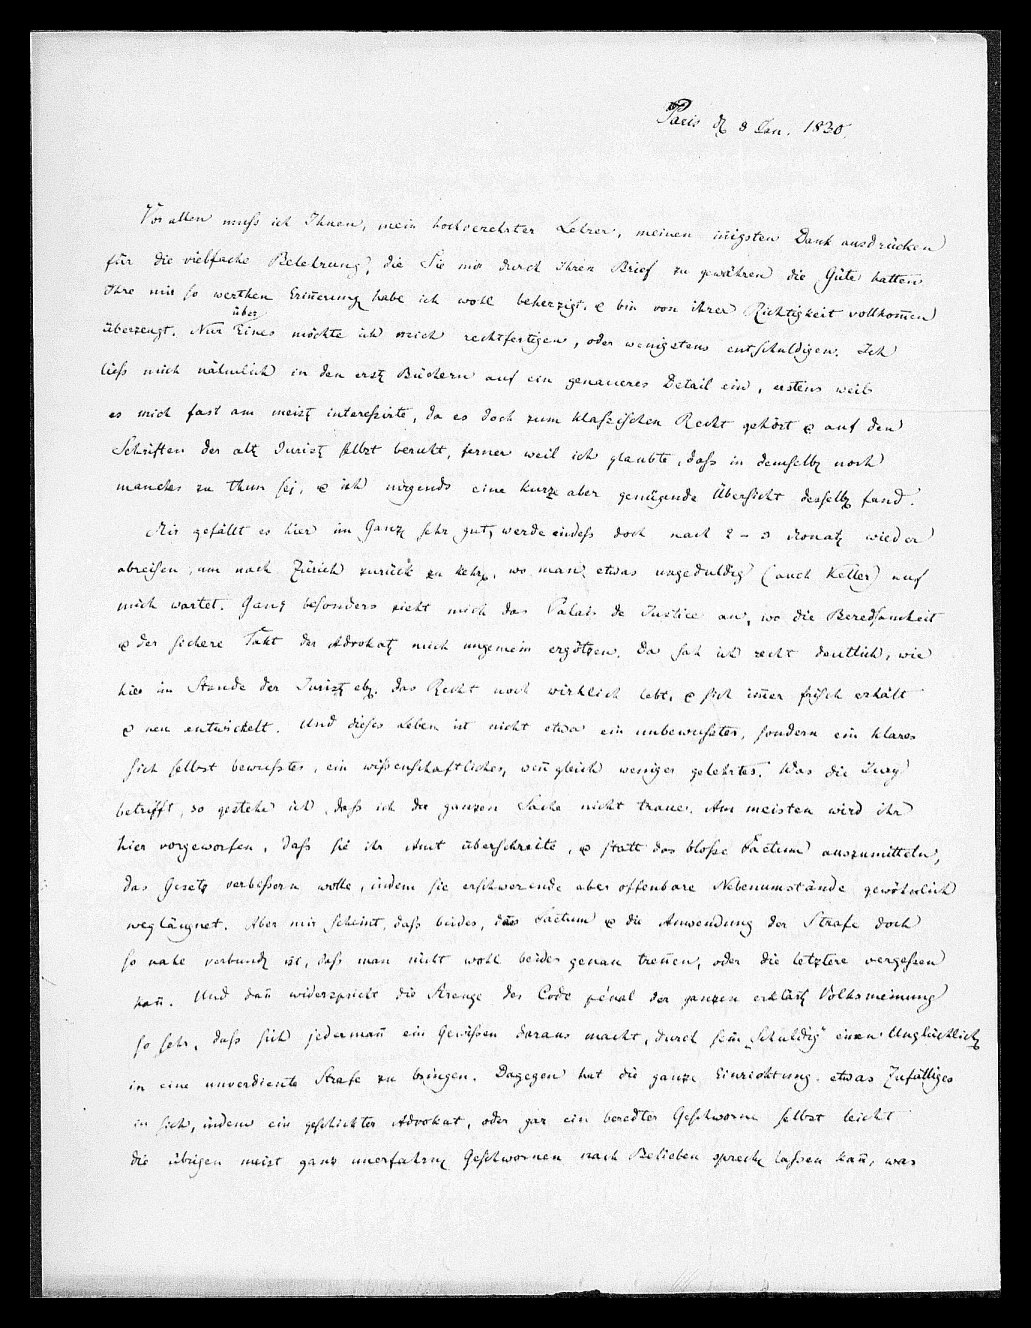 Paris d 8 Jan. 1830.
Vor allen muß ich Ihnen, mein hochverehrter Lehrer, meinen iñigsten Dank ausdrücken
für die vielfache Belehrung, die Sie mir durch Ihren Brief zu gewähren die Güte hatten.
Ihre mir so werthen Eriñerung habe ich wohl beherzigt, & bin von ihrer Richtigkeit vollkom̃en
überzeugt. Nur über Eines möchte ich mich rechtfertigen, oder wenigstens entschuldigen. Ich
ließ mich nähmlich in den erst Büchern auf ein genaueres Detail ein, erstens weil
es mich fast am meist interessirte, da es doch zum klassischen Recht gehört & auf den
Schriften der alt Jurist selbst beruht, ferner weil ich glaubte, daß in demselb noch
manches zu thun sei, & ich nirgends eine kurze aber genügende Übersicht desselb fand.
Mir gefällt es hier im Ganz sehr gut, werde indeß doch nach 2 – 3 Monat wieder
abreisen, um nach Zürich zurück zu kehr, wo man etwas ungeduldig (auch Keller) auf
mich wartet. Ganz besonders zieht mich das Palais de Justice an, wo die Beredsamkeit
& der sichere Takt der Advokat mich ungemein ergötzen. Da sah ich recht deutlich, wie
hier im Stande der Jurist eb. das Recht noch wirklich lebt, & sich im̃er frisch erhält
& neu entwickelt. Und dieses Leben ist nicht etwa ein unbewußtes, sondern ein klares
sich selbst bewußtes, ein wissenschaftliches, weñ gleich weniger gelehrtes. Was die Jury
betrifft, so gestehe ich, daß ich der ganzen Sache nicht traue. Am meisten wird ihr
hier vorgeworfen, daß sie ihr Amt überschreite, & statt das bloße Factum auszumitteln,
das Gesetz verbessern wolle, indem sie erschwerende aber offenbare Nebenumstände gewöhnlich
wegläugnet. Aber mir scheint, daß beides, das Factum & die Anwendung der Strafe doch
so nahe verbund ist, daß man nicht wohl beides genau treñen, oder die letztere vergessen
kañ. Und dañ widerspricht die Strenge des Code pénal der ganzen erklärt Volksmeinung
so sehr, daß sich jedermañ ein Gewissen daraus macht, durch sein „Schuldig“ einen Unglücklich
in eine unverdiente Strafe zu bringen. Dagegen hat die ganze Einrichtung etwas Zufälliges
in sich, indem ein geschickter Advokat, oder gar ein beredter Geschworne selbst leicht
die übrigen meist ganz unerfahrn Geschwornen nach Belieben sprech lassen kañ, was